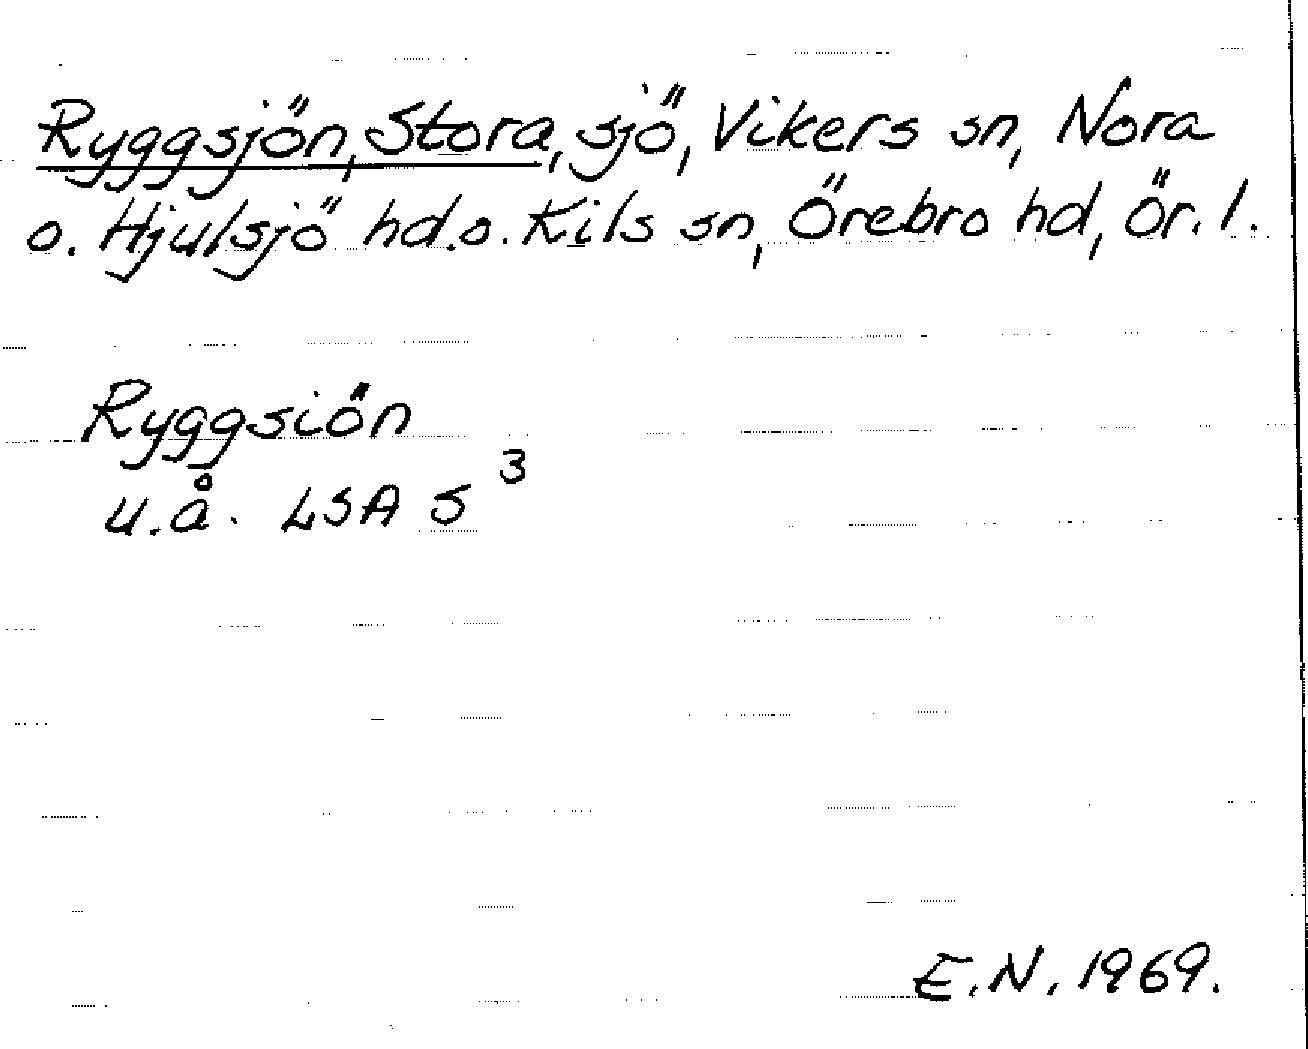 Ryggsjön, Stora, sjö, Vikers sn, Nora
o. Hjulsjö hd. o. Kils sn, Örebro hd, Ör. l.
Ryggsiön
u.å. LSA S 3
E.N. 1969.